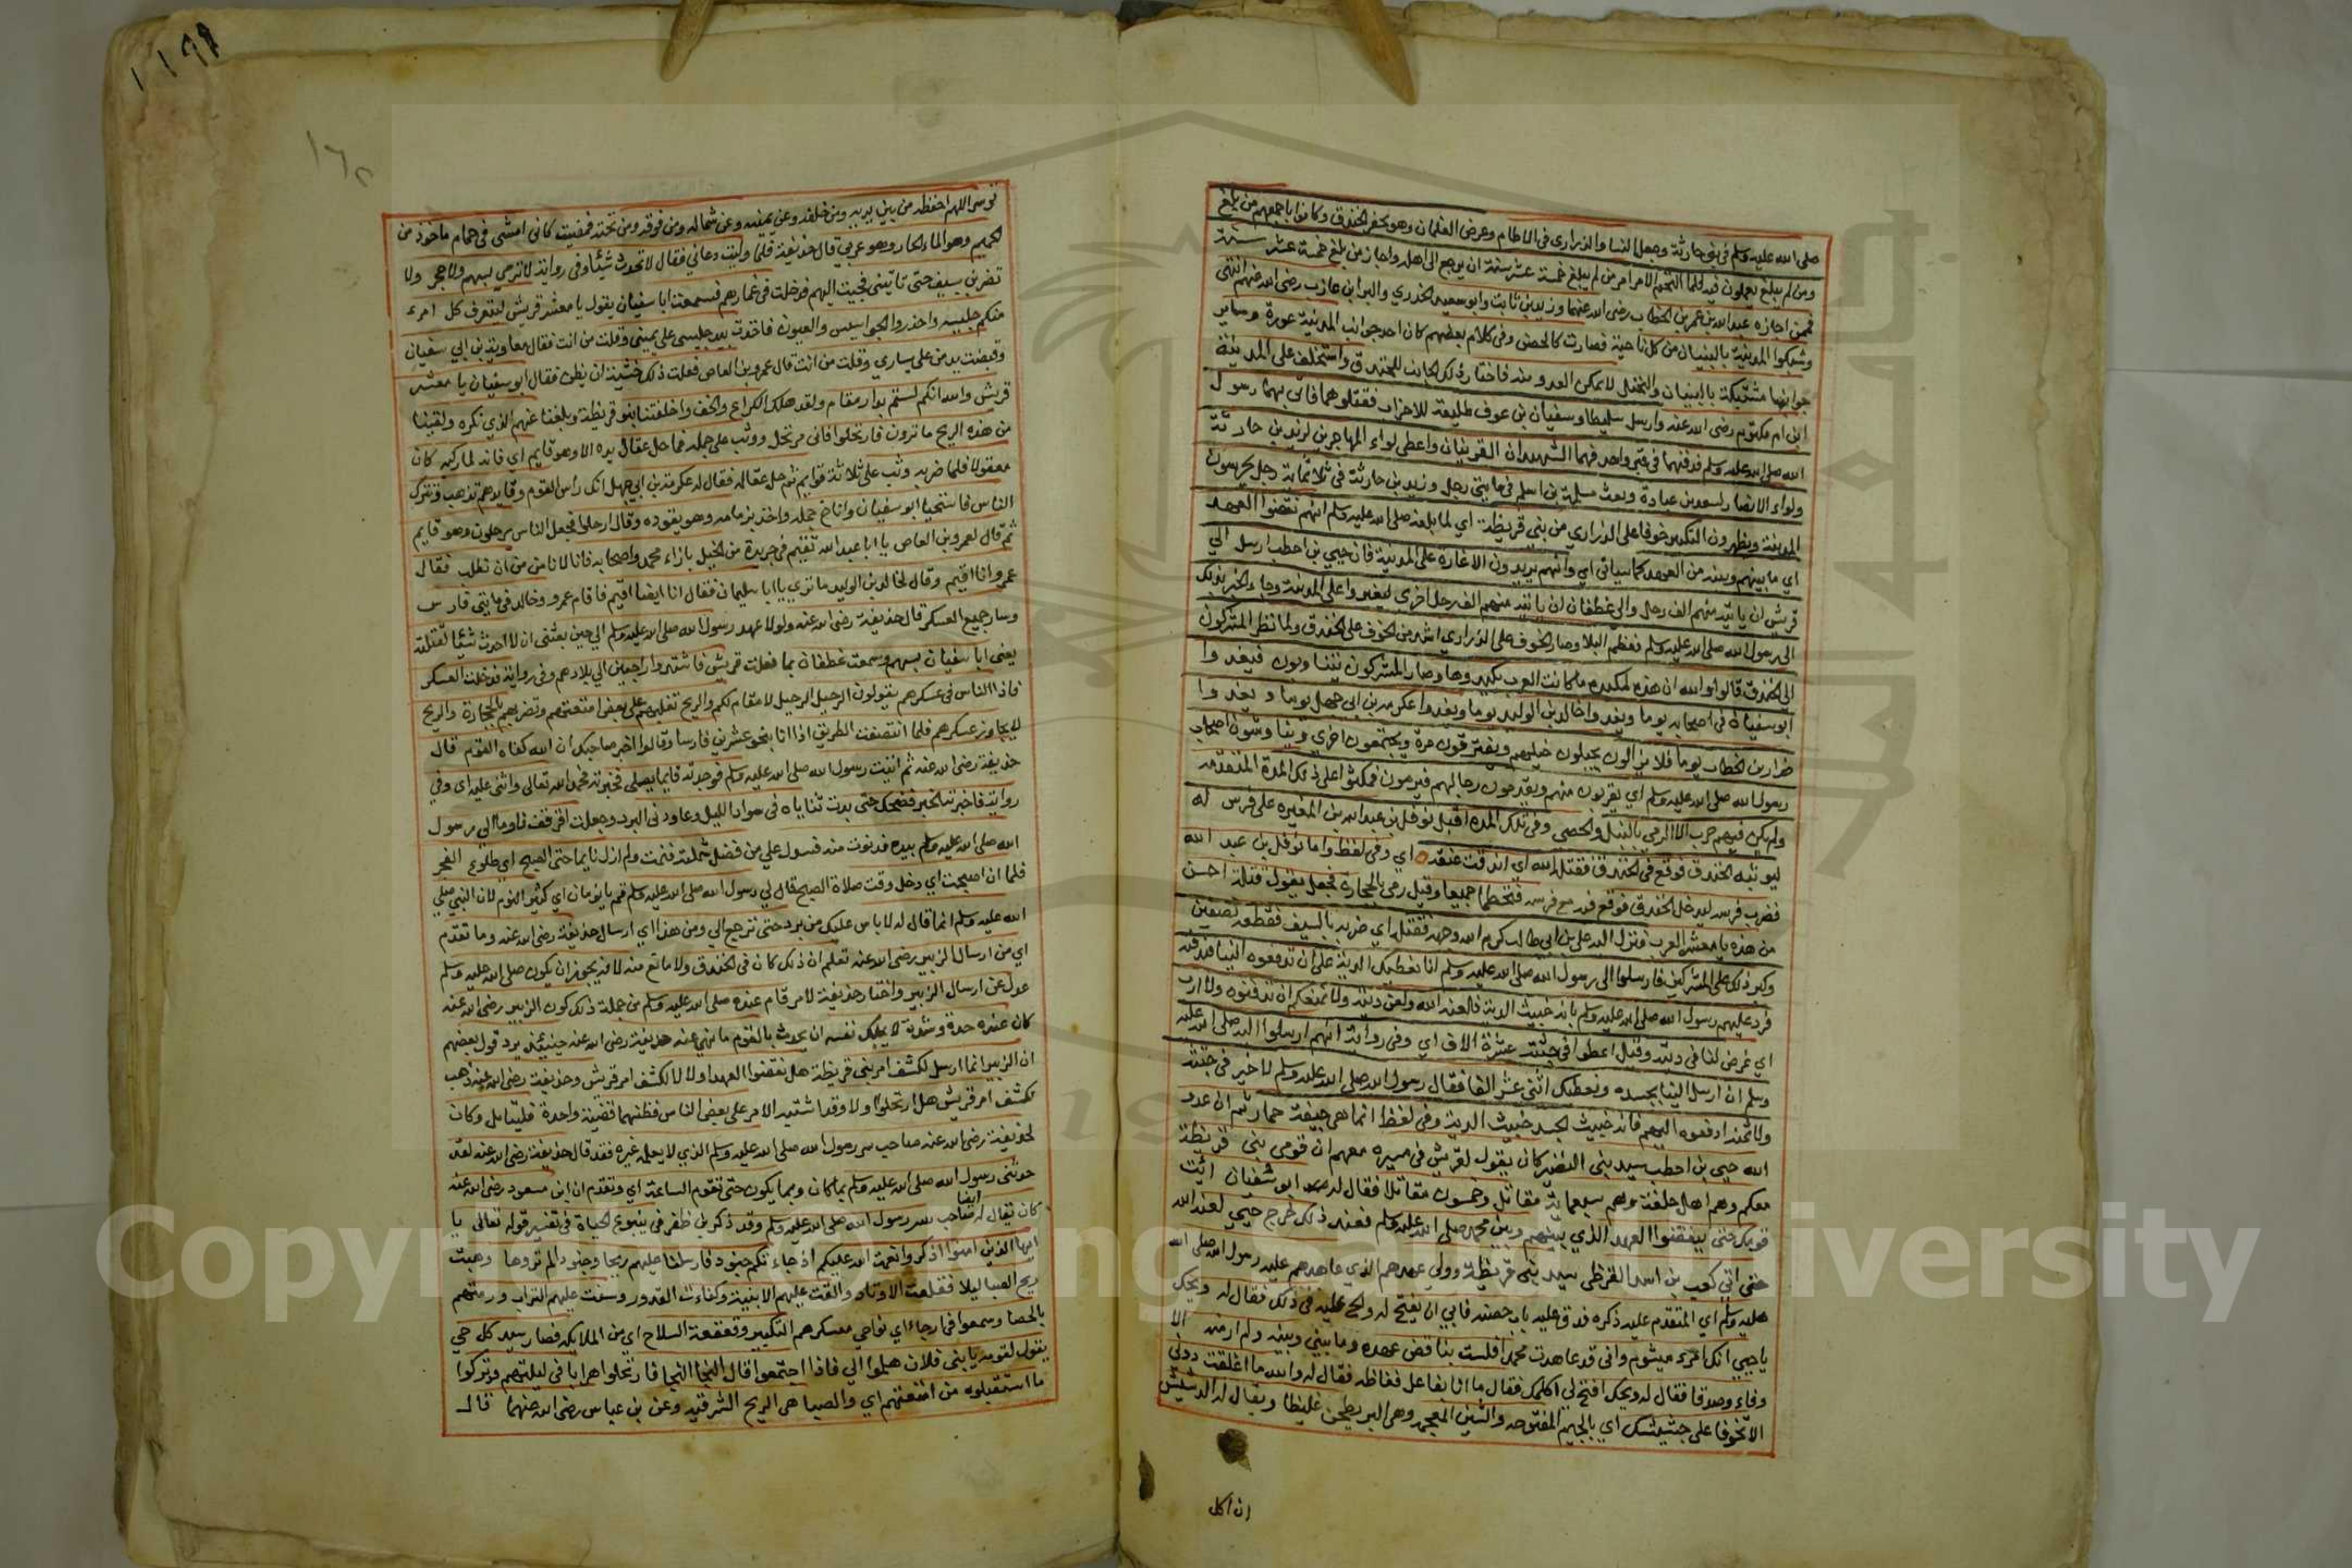 صلى الله عليه وسلم في بني حارثة وجعل النسا والذراري في الاطام وعرض الغلمان وهو يحفر الخندق وكانوا باجمعهم من بلغ
ومن لم يبلغ يعملون فيه فلما التحم الامر امر من لم يبلغ خمسة عشر سنة ان يرجع الى اهله واجاز من بلغ خمسة عشر سنة
فممن اجازه عبد الله بن عمر بن الخطاب رضى الله عنهما وزيد بن ثابت وابو سعيد الخدري والبرا ابن عازب رضى الله عنهم انتهى
وشبكوا المدينة بالبنيان من كل ناحية فصارت كالحصن وفى كلام بعضهم كان احد جوانب المدينة عورة وساير
جوانبها مشتبكة بالبنيان والنخل لا يتمكن العدو منه فاختار ذلك الجانب للخندق واستخلف على المدينة
ابن ام مكتوم رضى الله عنه وارسل سليطا وسفيان بن عوف طليعة للاحزاب فقتلوهما فاتى بهما رسول
الله صلى الله عليه وسلم فدفنهما في قبر واحد فهما الشهيدان القرينان واعطى لواء المهاجرين لزيد بن حارثة
ولواء الانصار لسعد بن عبادة وبعث مسلمة بن اسلم في مايتى رجل وزيد بن حارثة في ثلاثماية رجل يحرسون
المدينة ويظهرون التكبير خوفا على الذراري من بني قريظة اي لما بلغه صلى الله عليه وسلم انهم نقضوا العهد
اي ما بينهم وبينه من العهد كما سياتى اي وانهم يريدون الاغارة على المدينة فان حيي بن احطب ارسل الي
قريش ان ياتيه منهم الف رجل والى غطفان ان ياتيه منهم الف رجل اخرى ليغيروا على المدينة وجاء الخبر بذلك
الى رسول الله صلى الله عليه وسلم فعظم البلا وصار الخوف على الذراري اشد من الخوف على الخندق ولما نظر المشركون
الى الخندق قالوا والله ان هذه لمكيدة ما كانت العرب تكيدوها وصار المشركون يتناوبون فيغدوا
ابو سفيان في اصحابه يوما ويغدوا خالد بن الوليد يوما ويغدوا عكرمة بن ابي جهل يوما ويغدوا
ضرار بن الخطاب يوما فلا يزالون يجيلون خيلهم ويفترقون مرة ويجتمعون اخري ويناوشون اصحاب
رسول الله صلى الله عليه وسلم اي يقربون منهم ويقدمون رجالهم فيرمون فمكثوا على ذلك المدة المتقدمة
ولم يكن فيهم حرب الا الرمي بالنبل والحصي وفى تلك المدة اقبل نوفل بن عبد الله بن المغيرة على فرس له
ليوثبه الخندق فوقع في الخندق فقتله الله اي اندقت عنقه اي وفى لفظ واما نوفل بن عبد الله
فضرب فرسه ليدخل الخندق فوقع فيه مع فرسه فتحطما جميعا وقيل رمى بالحجارة فجعل يقول قتلة احسن
من هذه يا معشر العرب فنزل اليه على بن ابي طالب كرم الله وجهه فقتله اي ضربه بالسيف فقطعه نصفين
وكبر ذلك على المشركين فارسلوا الى رسول الله صلى الله عليه وسلم انا نعطيك الدية على ان تدفعوه الينا فندفنه
فرد عليهم رسول الله صلى الله عليه وسلم بانه خبيث الدية فلعنه الله ولعن ديته ولا نمنعكم ان تدفنوه ولا ارب
اي غرض لنا في ديته وقيل اعطوا في جثته عشرة الاف اي وفى رواية انهم ارسلوا اليه صلى الله عليه
وسلم ان ارسل الينا بجسده ونعطيك اثنى عشر الفا فقال رسول الله صلى الله عليه وسلم لا خير في جثته
ولا ثمنه ادفعوه اليهم فانه خبيث الجسد خبيث الدية وفى لفظ انما هى جيفة حمار ثم ان عدو
الله حيي بن احطب سيد بني النضير كان يقول لقريش في مسيره معهم ان قومى بني قريظة
معكم وهم اهل حلقة وهم سبعماية مقاتل وخمسون مقاتلا فقال له ابو سفيان ايت
قومك حتى ينقضوا العهد الذي بينهم وبين محمد صلى الله عليه وسلم فعند ذلك خرج حيي لعنه الله
حتى اتى كعب بن اسد القرظي سيد بني قريظة وولى عهدهم الذي عاهدهم عليه رسول الله صلى الله
عليه وسلم اي المتقدم عليه ذكره فدق عليه باب حصنه فابي ان يفتح له والح عليه في ذلك فقال له ويحك
يا حيي انك امرء ميشوم وانى قد عاهدت محمدا فلست بناقض عهده وما بيني وبينه ولم ار منه الا
وفاء وصدقا فقال له ويحك افتح لي اكلمك فقال ما انا بفاعل فغاظه فقال له والله ما اغلقت دوني
الا تخوفا على جشيشك اي بالجيم المفتوحة والشين المعجمه وهى البر يطحن غليظا ويقال له الدشيش
ان اكل
١١٩٩
قوسر اللهم احفظه من بين يديه ومن خلفه وعن يمينه وعن شماله ومن فوقه ومن تحته فمضيت كانى امشى في حمام ماخوذ من
الحميم وهو الماء الحار وهو عربي قال حذيفة فلما وليت دعاني فقال لا تحدث شيئا وفى رواية لا ترمي بسهم ولا حجر ولا
تضربن بسيف حتى تاتينى فجيت اليهم فدخلت في غمارهم فسمعت ابا سفيان يقول يا معشر قريش ليتعرف كل امرء
منكم جليسه واحذروا الجواسيس والعيون فاخذت بيد جليسى على يمينى وقلت من انت فقال معاوية بن ابي سفيان
وقبضت يد من على يساري وقلت من انت قال عمرو بن العاص فعلت ذلك خشية ان يظن فقال ابو سفيان يا معشر
قريش والله انكم لستم بدار مقام ولقد هلك الكراع والخف واخلفتنا بنو قريظة وبلغنا عنهم الذي نكره ولقينا
من هذه الريح ما ترون فارتحلوا فانى مرتحل ووثب على جمله فما حل عقال يده الا وهو قايم اي فانه لما ركبه كان
معقولا فلما ضربه وثب على ثلاثة قوايم ثم حل عقاله فقال له عكرمة بن ابي جهل انك راس القوم وقايدهم تذهب وتترك
الناس فاستحيا ابو سفيان واناخ جمله واخذ بزمامه وهو يقوده وقال ارحلوا فجعل الناس يرحلون وهو قايم
ثم قال لعمرو بن العاص يا ابا عبد الله تقيم في جريدة من الخيل بازاء محمد واصحابه فانا لا نامن من ان نطلب فقال
عمرو انا اقيم وقال لخالد بن الوليد ما ترى يا ابا سليمان فقال انا ايضا اقيم فاقام عمرو وخالد في مايتى فارس
وسار جميع العسكر قال حذيفة رضى الله عنه ولولا عهد رسول الله صلى الله عليه وسلم الي حين بعثنى ان لا احدث شيئا لقتلته
يعنى ابا سفيان بسهم وسمعت غطفان بما فعلت قريش فاشتدوا راجعين الي بلادهم وفى رواية فدخلت العسكر
فاذا الناس في عسكرهم يقولون الرحيل الرحيل لا مقام لكم والريح تقلبهم على بعض امتعتهم وتضربهم بالحجارة والريح
لا يجاوز عسكرهم فلما انتصفت الطريق اذا انا بنحو عشرين فارسا وقالوا اخبر صاحبك ان الله كفاه القوم قال
حذيفة رضى الله عنه ثم اتيت رسول الله صلى الله عليه وسلم فوجدته قايما يصلى فخبرته فحمد الله تعالى واثنى عليه اي وفي
رواية فاخبرته الخبر فضحك حتى بدت ثناياه في سواد الليل وعاودنى البرد وجعلت اقرقف فاوما الي رسول
الله صلى الله عليه وسلم بيده فدنوت منه فسدل علي من فضل شملته فنمت ولم ازل نايما حتى الصبح اي طلوع الفجر
فلما ان اصبحت اي دخل وقت صلاة الصبح قال لي رسول الله صلى الله عليه وسلم قم يا نومان اي كثير النوم لان النبي صلى
الله عليه وسلم انما قال له لا باس عليك من برد حتى ترجع الي ومن هذا اي ارسال حذيفة رضى الله عنه وما تقدم
اي من ارسال الزبير رضى الله عنه تعلم ان ذلك كان في الخندق ولا مانع منه لانه يجوز ان يكون صلى الله عليه وسلم
عدل عن ارسال الزبير واختار حذيفة لامر قام عنده صلى الله عليه وسلم من جملة ذلك كون الزبير رضى الله عنه
كان عنده حدة وشدة لا يملك نفسه ان يحدث بالقوم ما نهي عنه حذيفة رضى الله عنه حينيئذ يرد قول بعضهم
ان الزبير انما ارسل لكشف امر بني قريظة هل نقضوا العهد اولا لا لكشف امر قريش وحذيفة رضى الله عنه ذهب
لكشف امر قريش هل ارتحلوا او لا وقد اشتبه الامر على بعض الناس فظنهما قضية واحدة فليتامل وكان
لحذيفة رضى الله عنه صاحب سر رسول الله صلى الله عليه وسلم الذي لا يعلمه غيره فقد قال حذيفة رضى الله عنه لقد
حدثنى رسول الله صلى الله عليه وسلم بما كان وبما يكون حتى تقوم الساعة اي وتقدم ان ابن مسعود رضى الله عنه
كان يقال له ايضا صاحب سر رسول الله صلى الله عليه وسلم وقد ذكر بن ظفر في ينبوع الحياة في تفسير قوله تعالى يا
ايها الذين امنوا اذكروا نعمة الله عليكم اذ جاءتكم جنود فارسلنا عليهم ريحا وجنودا لم تروها وهبت
ريح الصبا ليلا فقلعت الاوتاد والقت عليهم الابنية وكفاءت القدور وسفت عليهم التراب ورمتهم
بالحصا وسمعوا في ارجاء اي نواحي معسكرهم التكبير وقعقعة السلاح اي من الملايكة فصار سيد كل حي
يقول لقومه يا بني فلان هلموا الي فاذا اجتمعوا قال النجا النجا فارتحلوا هرابا في ليلتهم وتركوا
ما استقبلوه من امتعتهم اي والصبا هى الريح الشرقية وعن بن عباس رضى الله عنهما قال
Copyright © King Saud University